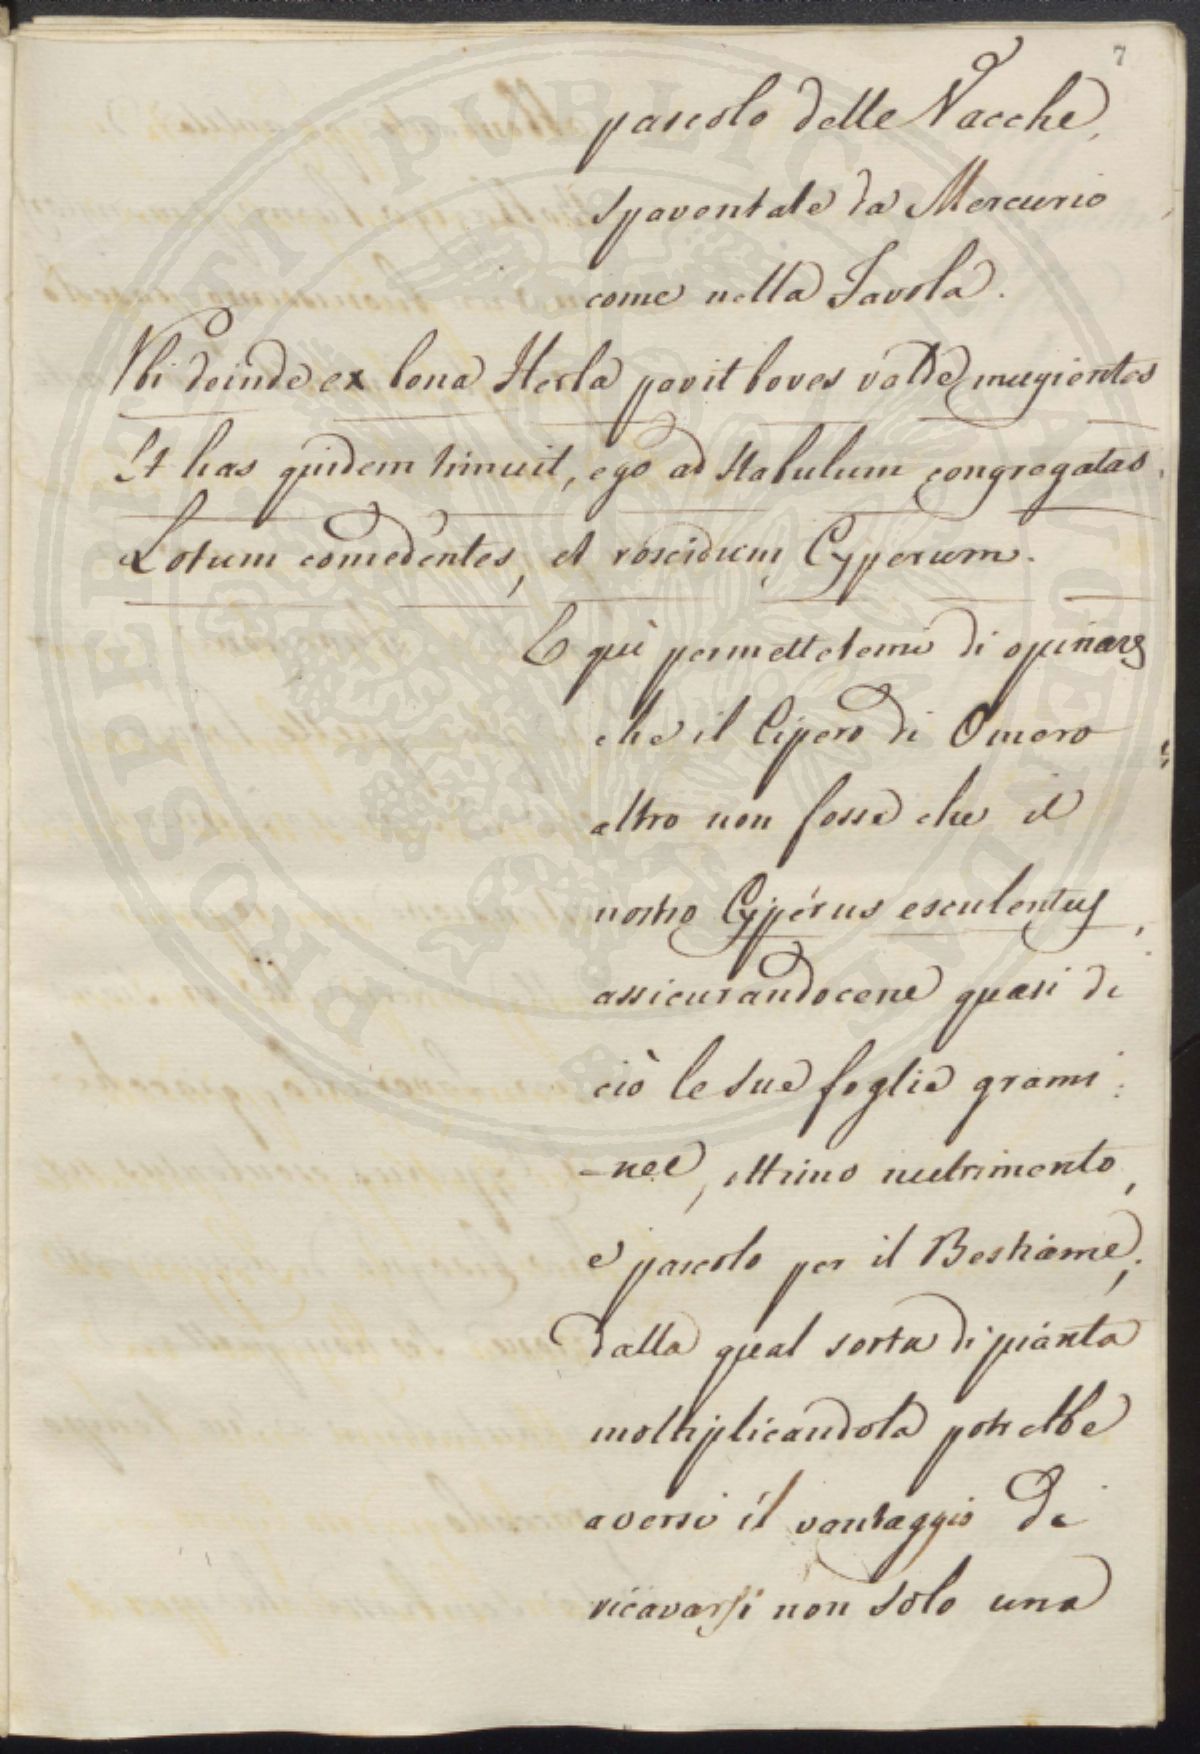 7
pascolo delle Vacche,
spaventate da Mercurio
come nella Favola.
Vbi deinde ex bona Herba pavit boves valde mugientes
Et has quidem himuit, ego ad stabulum congregatas.
Lotum comedentes, et roscidum Cyperum.
E quì permettetemi di opinare
che il Cipero di Omero
altro non fosse che il
nostro Cypérus esculentus,
assicurandocene quasi di
ciò le sue foglie grami:
-nee, ottimo nutrimento,
e pascolo per il Bestiame;
dalla qual sorta di pianta
moltiplicandola potrebbe
aversi il vantaggio di
ricavarsi non solo una
PROSPERITATI PVBLICAE AVGENDAE